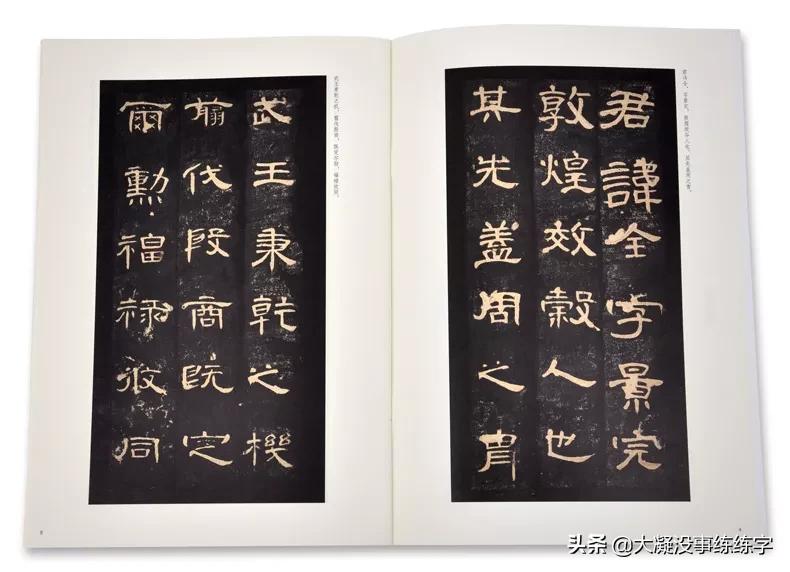 君讳全，字景完，敦煌效谷人也。其先盖周之胄，
君諱全字景完
敦煌效穀人也
其先蓋周之胄
武王秉乾之机，翦伐殷商，既定尔勋，福禄攸同。
武王秉乾之機
翦伐殷商既定
爾勳福祿攸同
头条 @大凝没事练练字